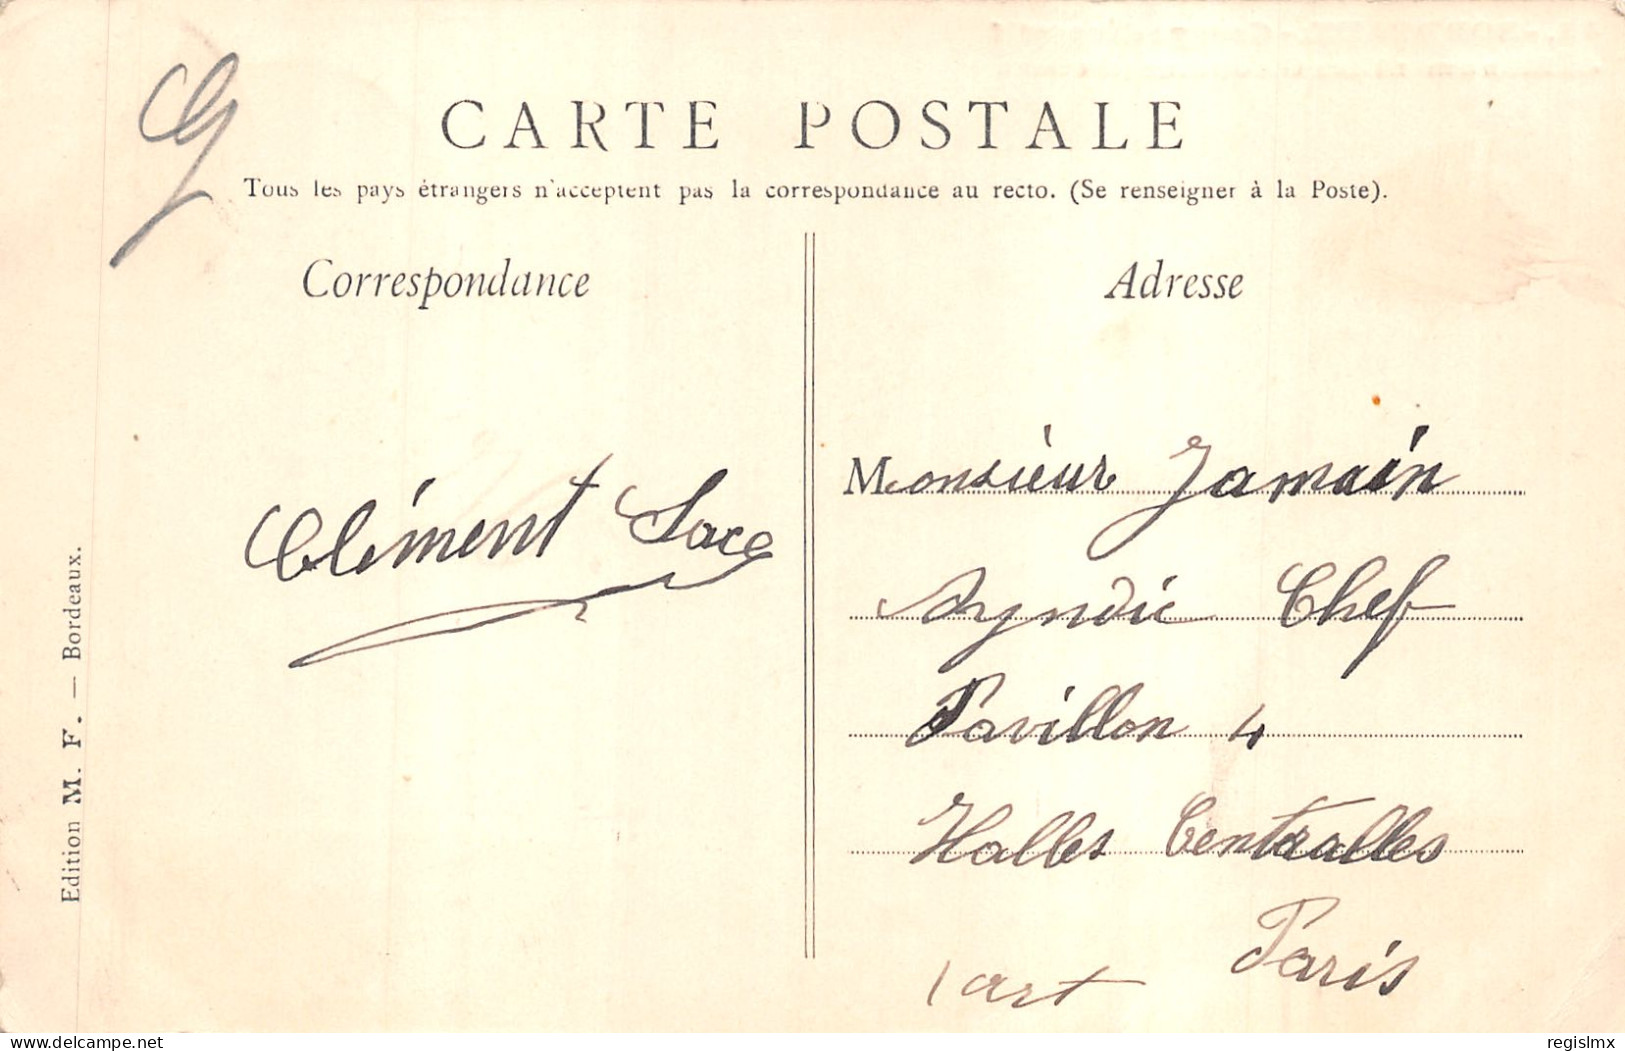 CARTE POSTALE
Tous les pays étrangers n'acceptent pas la correspondance au recto. (Se renseigner à la Poste).
Correspondance
Clément
Edition M. F. — Bordeaux.
Adresse
Monsieur Jamain
Syndic Chef
Pavillon 4
Halles Centralles
Paris
delcampe.net
regislmx